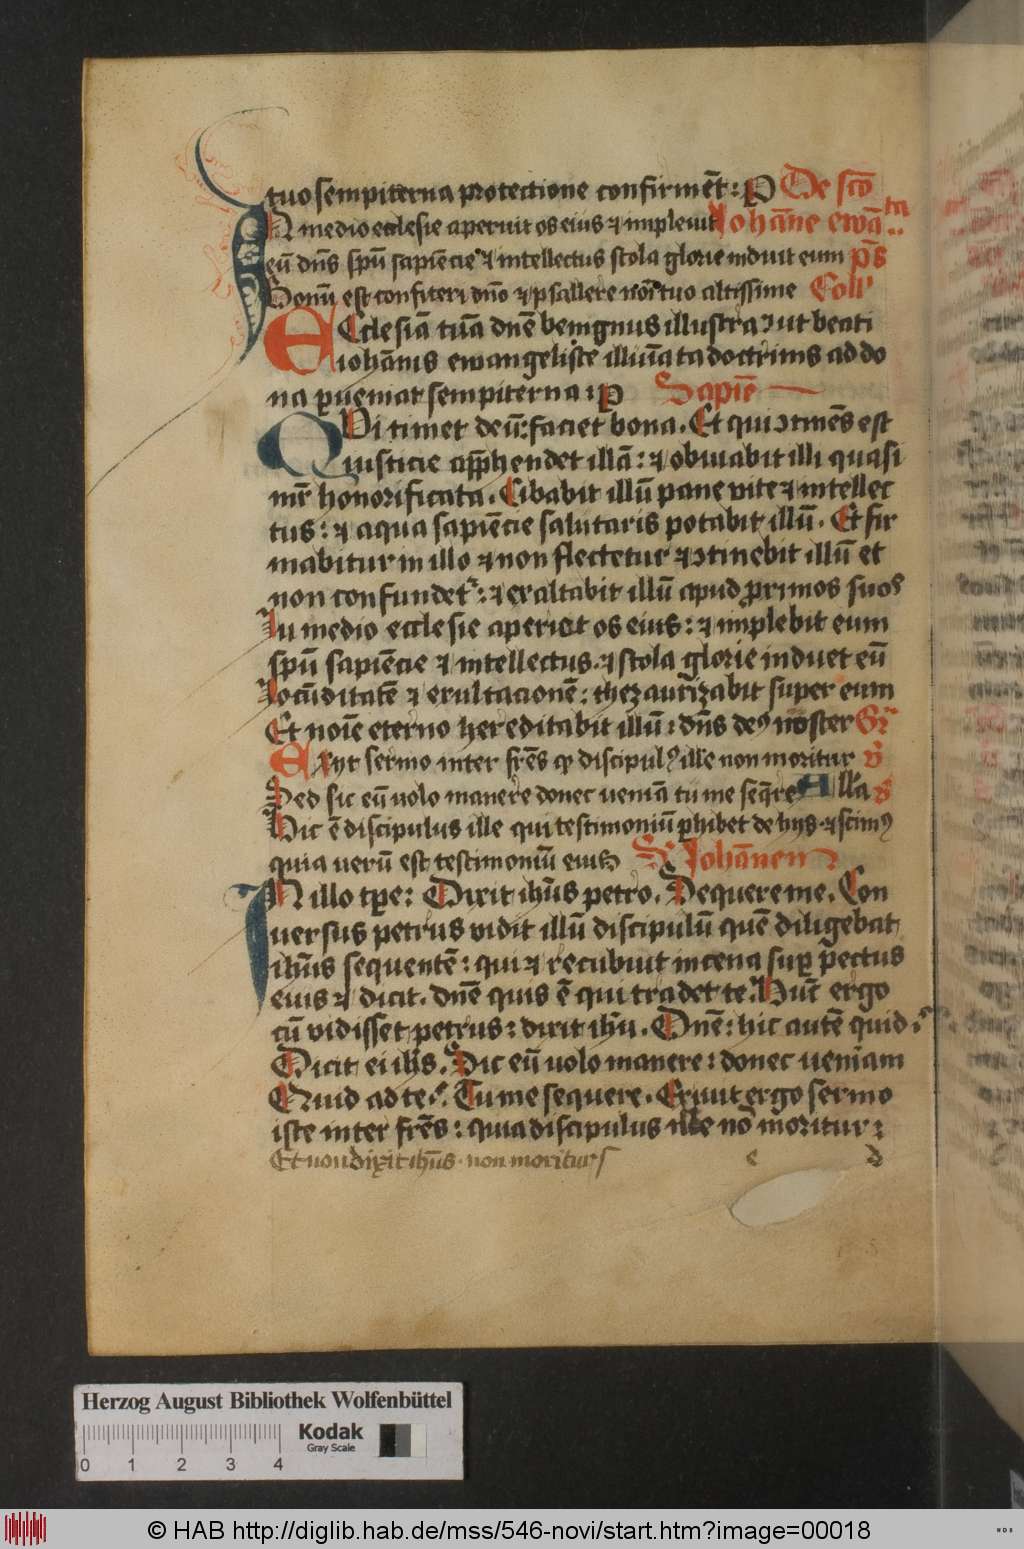 tuo sempiterna protectione confirmēt : P De scō
IN medio ecclesie aperuit os eius ⁊ impleuit Johāne ewāta
eū dn̄s spū sapiēcie ⁊ intellectus stola glorie induit eum ps̄
Bonū est confiteri dn̄o ⁊ psallere noī tuo altissime Coll'
ECclesiā tuā dn̄e benignus illustra : ut beati
iohānis ewangeliste illiūata doctrinis ad do
na ꝑueniat sempiterna : P Sapiē
QVi timet deū : faciet bona . Et qui ↄtinēs est
iusticie app̄hendet illā : ⁊ obuiabit illi quasi
mr̄ honorificata . Cibabit illū pane vite ⁊ intellec
tus : ⁊ aqua sapiēcie salutaris potabit illū . Et fir
mabitur in illo ⁊ non flectetur ⁊ ↄtinebit illū et
non confundet' : ⁊ exaltabit illū apud ꝓximos suos
In medio ecclesie aperiet os eius : ⁊ implebit eum
spū sapiēcie ⁊ intellectus . ⁊ stola glorie induet eū
Jocūditatē ⁊ exultacionē : thezaurizabit super eum
Et noīe eterno hereditabit illū : dn̄s deꝰ noster Gr̄
EXyt sermo inter fr̄es ꝙ discipulꝰ ille non moritur v̄
Sed sic eū uolo manere donec veniā tu me seq̄re Allā s
Hic ē discipulus ille qui testimoniū ꝑhibet de hys . ⁊ scimꝰ
quia uerū est testimoniū eius Johānem
IN illo tꝑe : Dixit ihūs petro . Sequere me . Con
uersus petrus vidit illū discipulū quē diligebat
ihūs sequentē : qui ⁊ recubuit in cena suꝑ pectus
eius ⁊ dicit . dn̄e quis ē qui tradet te . Hūc ergo
cū vidisset petrus : dixit ihū . Dn̄e : hic autē quid ?
Dicit ei ihs̄ . Sic eū uolo manere : donec ueniam
Quid ad te ? Tu me sequere . Exiuit ergo sermo
iste inter fr̄es : quia discipulus ille nō moritur :
Et non dixit ihūs . non moritur s
Herzog August Bibliothek Wolfenbüttel
Kodak
Gray Scale
0 1 2 3 4
© HAB http://diglib.hab.de/mss/546-novi/start.htm?image=00018